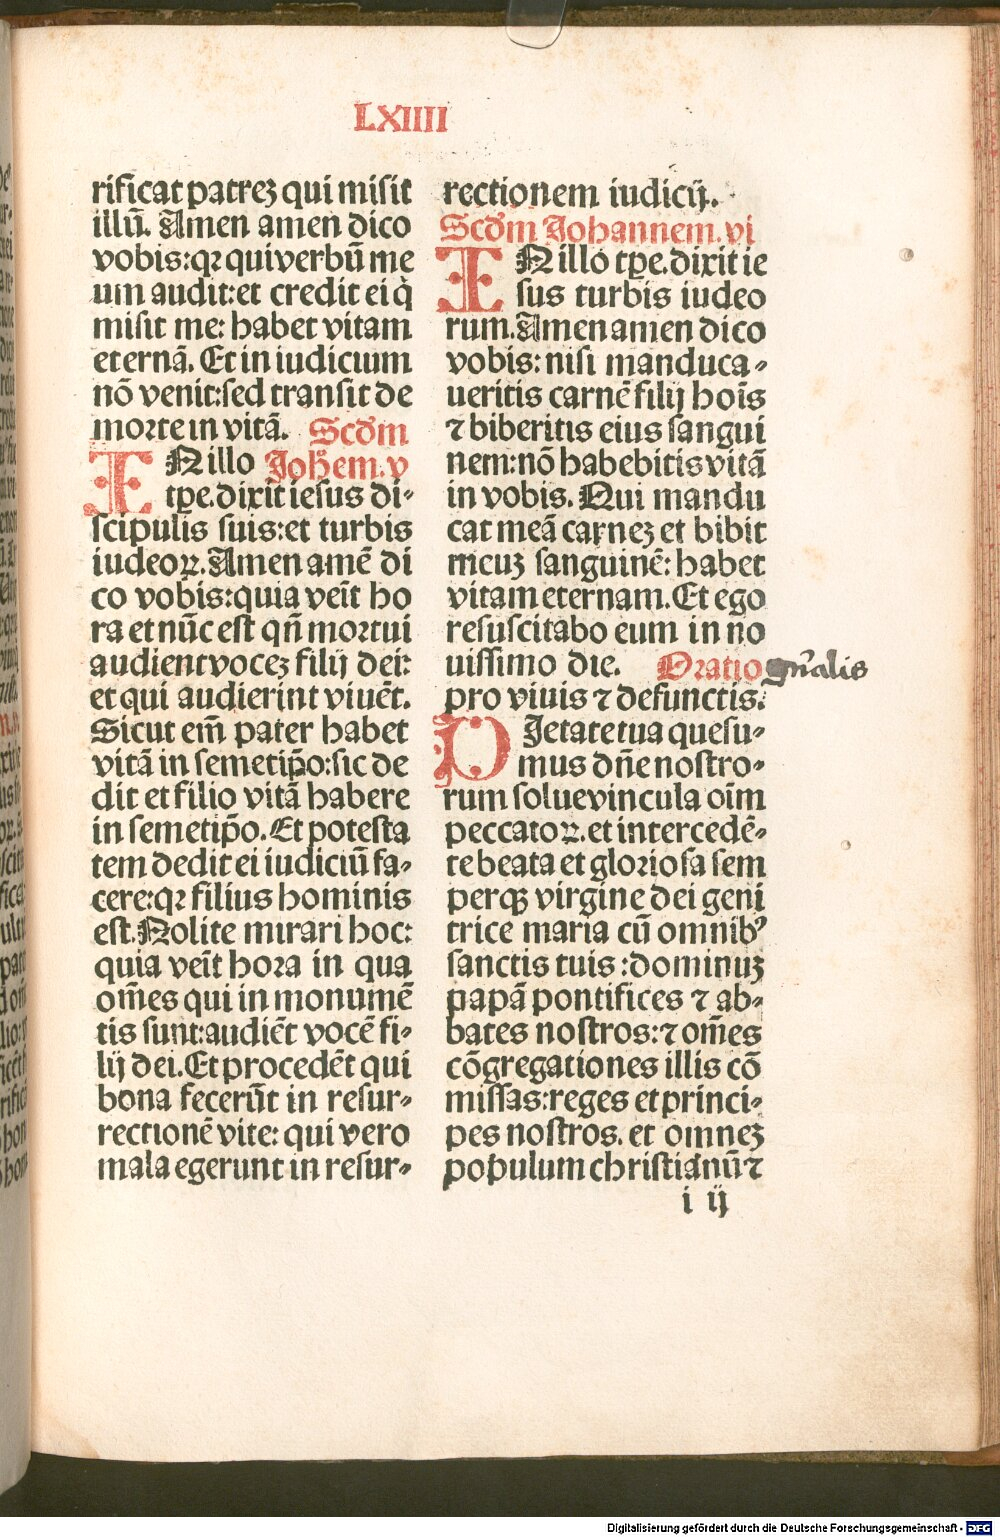 LXIIII
rificat patreʒ qui misit
illū. Amen amen dico
vobis: qꝛ qui verbū me
um audit: et credit ei q̇
misit me: habet vitam
eternā. Et in iudicium
nō venit: sed transit de
morte in vitā. Scd̄m
IN illo Joh̄em. v
tꝑe. dixit iesus di⸗
scipulis suis: et turbis
iudeoꝝ. Amen amē di
co vobis: quia veīt ho
ra et nūc est qn̄ mortui
audient voceʒ filij dei:
et qui audierint viuēt.
Sicut em̄ pater habet
vitā in semetip̄o: sic de
dit et filio vitā habere
in semetip̄o. Et potesta
tem dedit ei iudiciū fa⸗
cere: qꝛ filius hominis
est. Nolite mirari hoc:
quia veīt hora in qua
om̄es qui in monumē
tis sunt: audiēt vocē fi⸗
lij dei. Et procedēt qui
bona fecerūt in resur⸗
rectionē vite: qui vero
mala egerunt in resur⸗
rectionem iudicij.
Scd̄m Johannem. vi
IN illo tꝑe. dixit ie
sus turbis iudeo
rum. Amen amen dico
vobis: nisi manduca⸗
ueritis carnē filij hoīs
⁊ biberitis eius sangui
nem: nō habebitis vitā
in vobis. Qui mandu
cat meā carneʒ et bibit
meuʒ sanguinē: habet
vitam eternam. Et ego
resuscitabo eum in no
uissimo die. Oratio gn̄alis
pro viuis ⁊ defunctis.
PIetate tua quesu⸗
mus dn̄e nostro⸗
rum solue vincula oīm
peccatoꝝ. et intercedē⸗
te beata et gloriosa sem
perqꝫ virgine dei geni
trice maria cū omnibꝰ
sanctis tuis: dominuʒ
papā pontifices ⁊ ab⸗
bates nostros: ⁊ om̄es
cōgregationes illis cō
missas: reges et princi⸗
pes nostros. et omneʒ
populum christianū ⁊
i ij
Digitalisierung gefördert durch die Deutsche Forschungsgemeinschaft - DFG